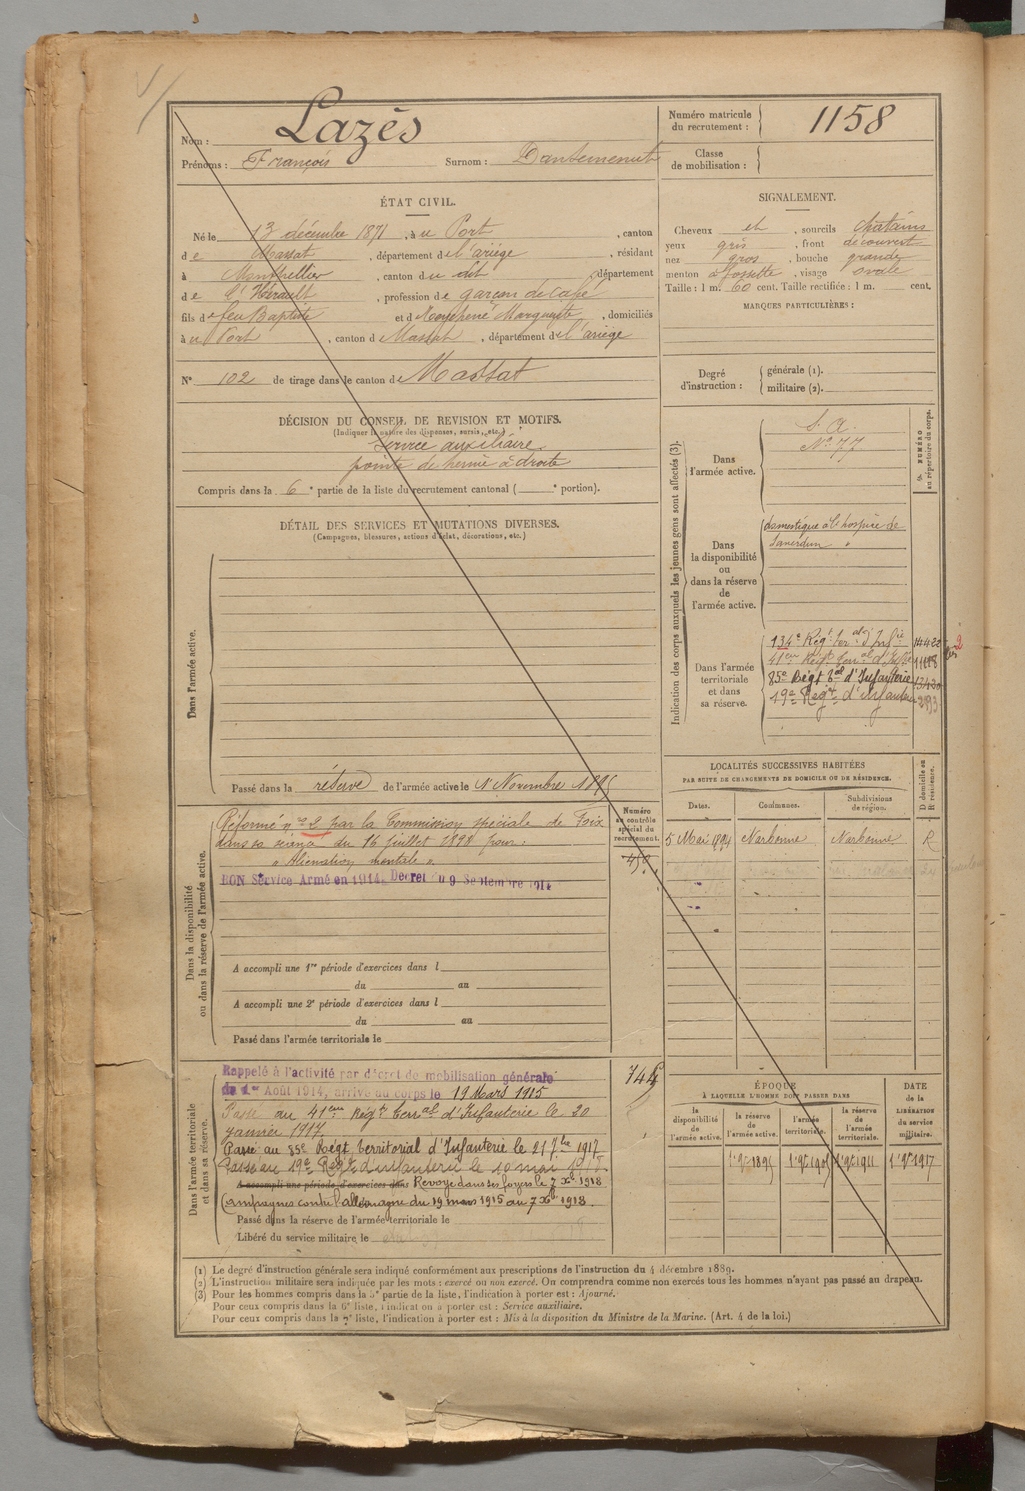 Nom : Lazès
Prénoms : François Surnom : Dantemenut
Numéro matricule du recrutement : 1158
Classe de mobilisation :
ÉTAT CIVIL.
Né le 13 décembre 1871, à u Port, canton
de Massat, département de l'ariège, résidant
à Montpellier, canton du dit, département
de l'Hérault, profession de garçon de café
fils de feu Baptiste et d Marguerite, domiciliés
à u Port, canton d Massat, département de l'ariège
N° 102 de tirage dans le canton de Massat
SIGNALEMENT.
Cheveux et, sourcils chatains
yeux gris, front découvert
nez gros, bouche grande
menton à fossette, visage ovale
Taille : 1 m. 60 cent. Taille rectifiée : 1 m. cent.
MARQUES PARTICULIÈRES :
Degré d'instruction : générale (1). militaire (2).
DÉCISION DU CONSEIL DE REVISION ET MOTIFS.
(Indiquer la nature des dispenses, sursis, etc.)
Service auxiliaire
pointe de hernie à droite
Compris dans la 6e partie de la liste du recrutement cantonal ( e portion).
DÉTAIL DES SERVICES ET MUTATIONS DIVERSES.
(Campagnes, blessures, actions d'éclat, décorations, etc.)
Dans l'armée active.
Passé dans la réserve de l'armée active le 1er Novembre 1895
Indication des corps auxquels les jeunes gens sont affectés (3).
NUMÉRO au répertoire du corps.
Dans l'armée active.
S. A.
N° 77
Dans la disponibilité ou dans la réserve de l'armée active.
domestique à l'hospice de
Saverdun
Dans l'armée territoriale et dans sa réserve.
134e Régt Ter al d'Infie
41eme Régt Ter al d'Inf
85e Régt Tal d'Infanterie 13430
19e Regt d'Infanterie
Dans la disponibilité ou dans la réserve de l'armée active.
Numéro au contrôle spécial du recrutement.
Réformé n° 2 par la Commission spéciale de Foix
dans sa séance du 16 juillet 1898 pour :
" Aliénation mentale "
BON Service Armé en 1914. Décret du 9 Septembre 1914
A accompli une 1re période d'exercices dans l
du au
A accompli une 2e période d'exercices dans l
du au
Passé dans l'armée territoriale le
LOCALITÉS SUCCESSIVES HABITÉES
PAR SUITE DE CHANGEMENTS DE DOMICILE OU DE RÉSIDENCE.
Dates. Communes. Subdivisions de région. D domicile ou R résidence.
5 Mai 1894 Narbonne Narbonne R
Dans l'armée territoriale et dans sa réserve.
Rappelé à l'activité par décret de mobilisation générale
du 1er Août 1914, arrivé au corps le 19 Mars 1915
Passé au 41eme Régt Terr al d'Infanterie le 20
janvier 1917
Passé au 85e Régt Territorial d'Infanterie le 21 7bre 1917
Passé au 19e Regt d'infanterie le 10 mai 1918
A accompli une période d'exercices dans Renvoyé dans ses foyers le 7 Xbre 1918
Campagnes contre l'allemagne du 19 mars 1915 au 7 Xbre 1918.
Passé dans la réserve de l'armée territoriale le
Libéré du service militaire le
ÉPOQUE
À LAQUELLE L'HOMME DOIT PASSER DANS
la disponibilité de l'armée active. la réserve de l'armée active. l'armée territoriale. la réserve de l'armée territoriale.
DATE de la LIBÉRATION du service militaire.
1 9bre 1895 1 9bre 1905 1 9bre 1911 1 9bre 1917
(1) Le degré d'instruction générale sera indiqué conformément aux prescriptions de l'instruction du 4 décembre 1889.
(2) L'instruction militaire sera indiquée par les mots : exercé ou non exercé. On comprendra comme non exercés tous les hommes n'ayant pas passé au drapeau.
(3) Pour les hommes compris dans la 5e partie de la liste, l'indication à porter est : Ajourné.
Pour ceux compris dans la 6e liste, l'indication à porter est : Service auxiliaire.
Pour ceux compris dans la 7e liste, l'indication à porter est : Mis à la disposition du Ministre de la Marine. (Art. 4 de la loi.)